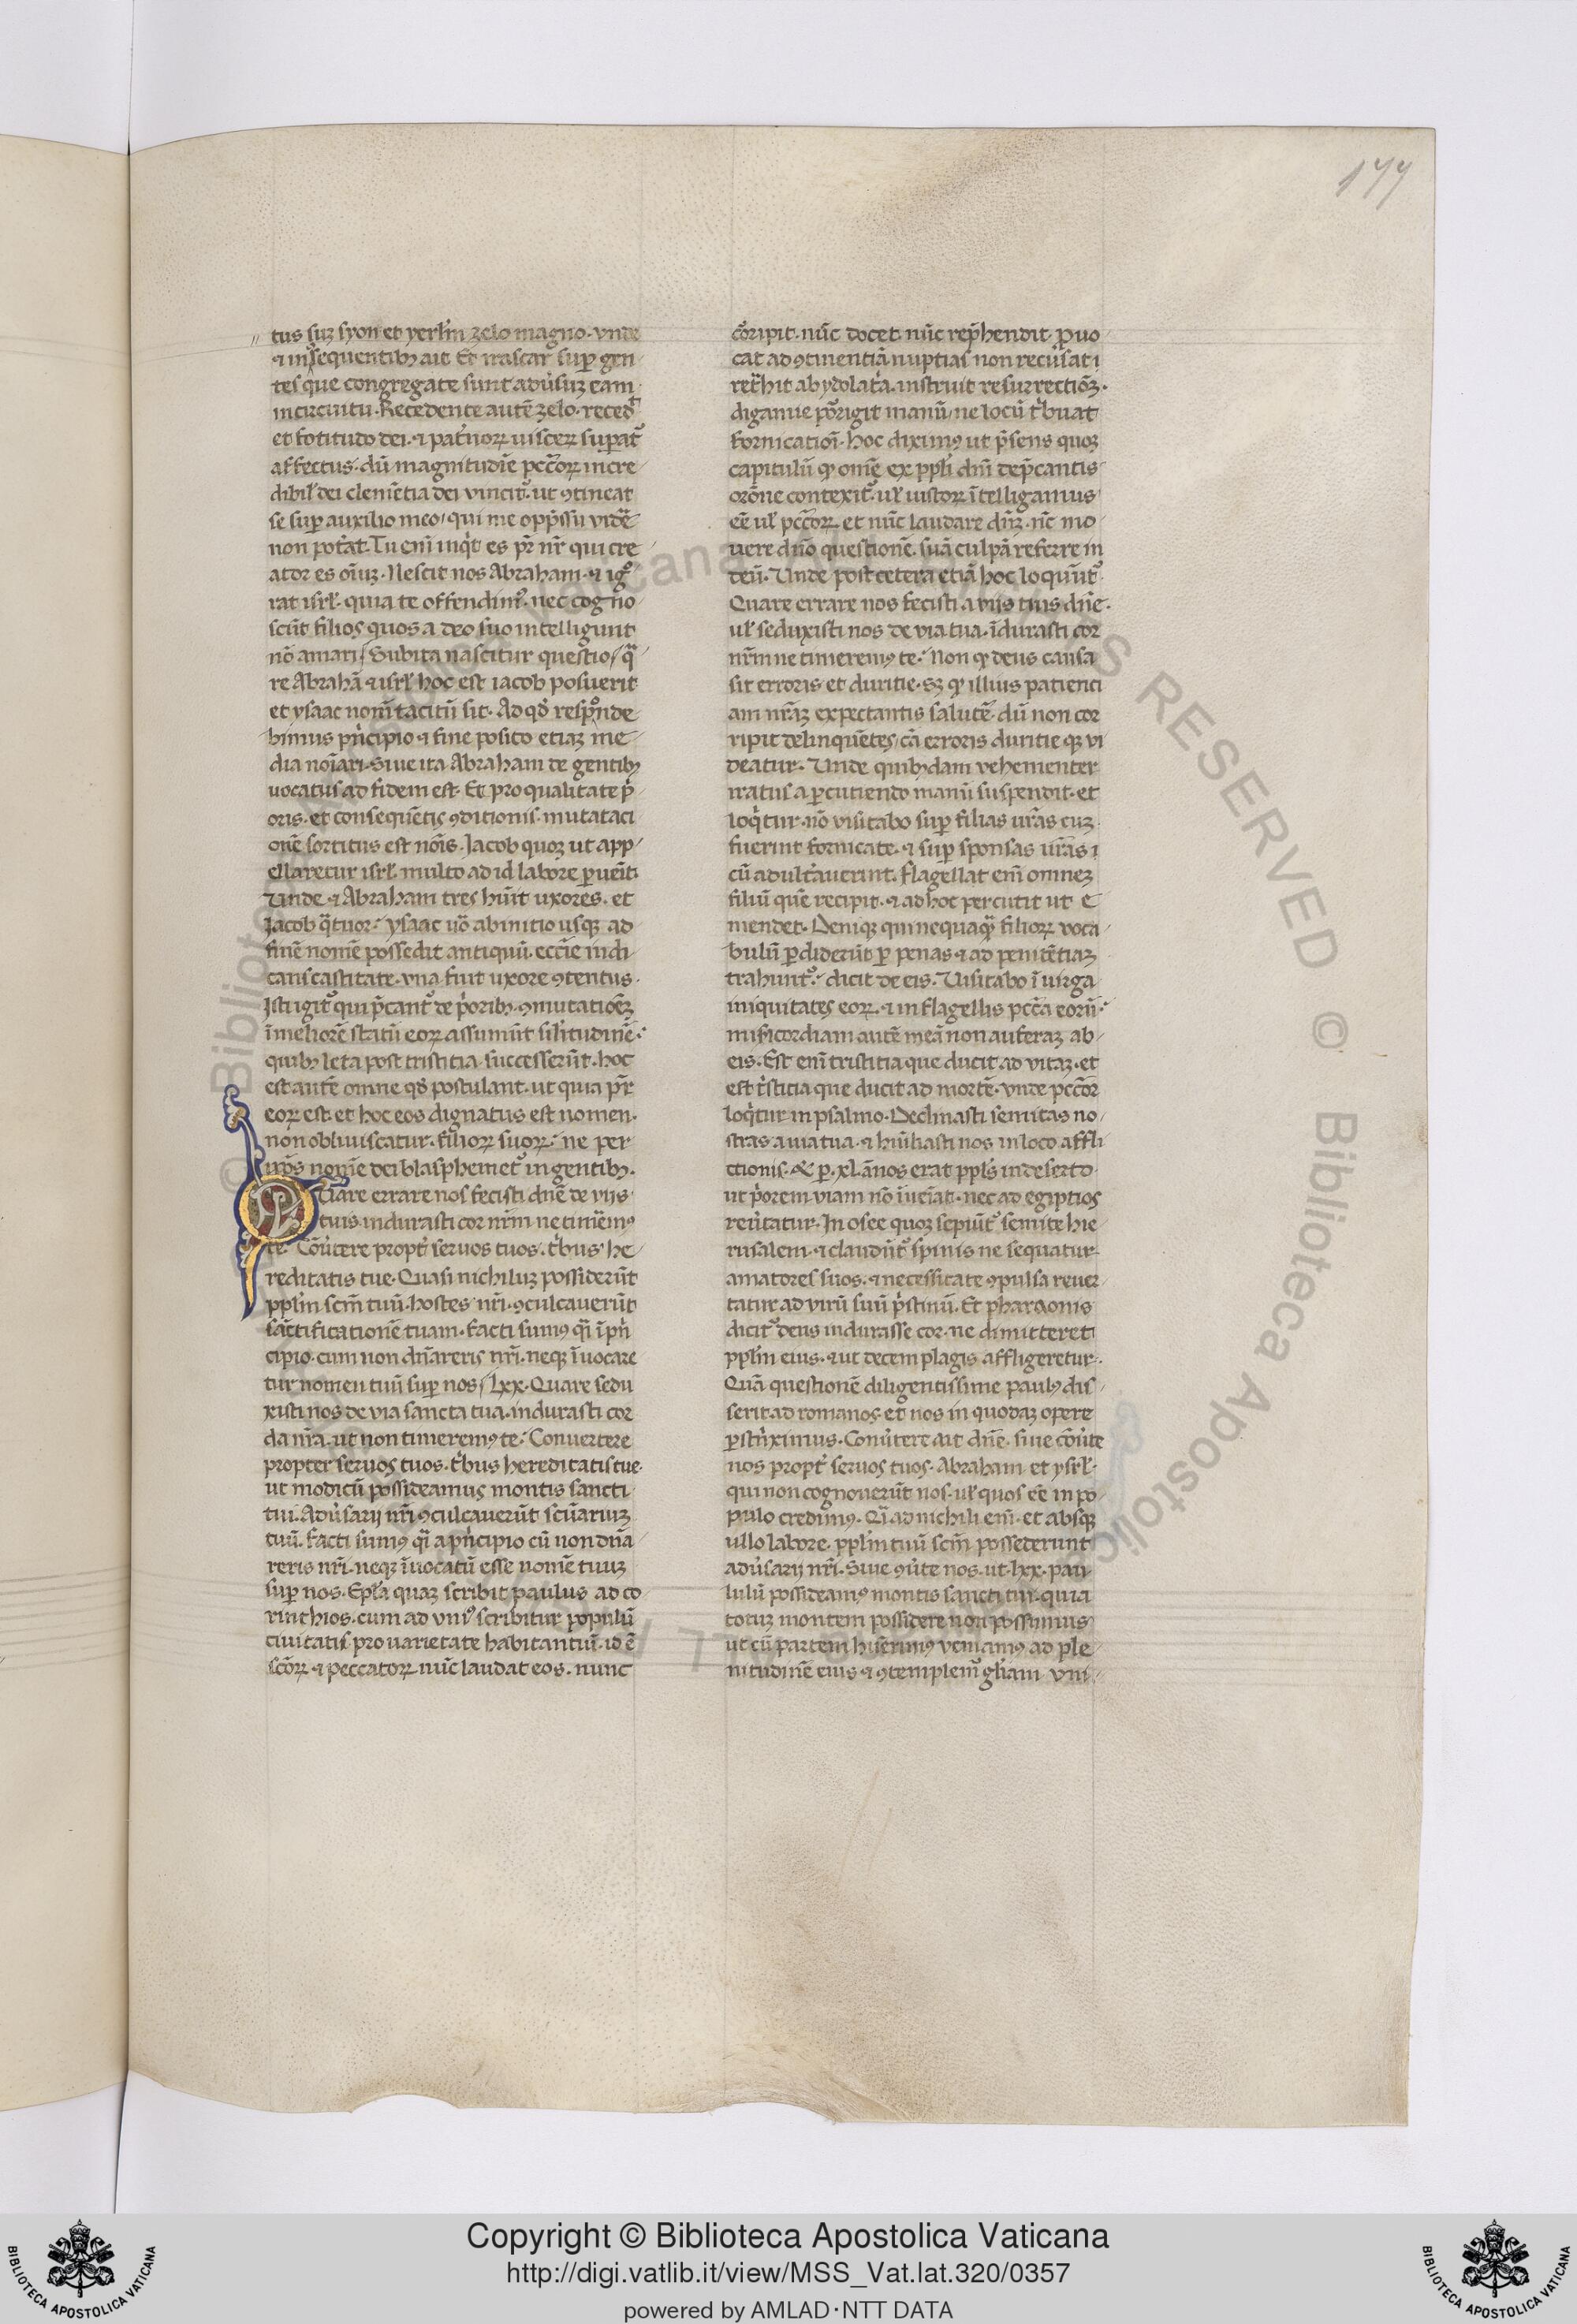 177
tus suꝫ syon et yerl̅m zelo magno. vnde
⁊ in sequentibꝫ ait Et irascar sup̲ gen
tes que congregate sunt adu̾suꝫ eam
in circuitu. Recedente aute̅ zelo. reced̾
et fotitudo dei. ⁊ pat̾noꝝ uisceꝝ sup̲at᷑
affectus. du̅ magnitudie̅ pcc̅oꝝ incre
dibil̾ dei cleme̅tia dei vincit᷑. ut ꝯtineat
se sup̲ auxilio meo, qui me opp̅ssu̅ vide̅
non pot̾at. Tu eni̅ inq̇t es pr̅ nr̅ qui cre
ator es oi̅uꝫ. Nescit nos Abraham. ⁊ ig̊
rat isrl̅. quia te offendim᷒. nec cogno
scu̅t filios quos a deo suo intelligunt
no̅ amari. Subita nascitur questio, q̅
re Abraha̅ ⁊ isrl̅ hoc est iacob posuerit
et ysaac nom̅ tacitu̅ sit. Ad qd̅ respo̅nde
bimus p̅ncipio ⁊ fine posito etiaꝫ me
dia noi̅ari. Siue ita Abraham de gentibꝫ
uocatus ad fidem est. Et pro qualitate p̅
oris. et conseque̅tis ꝯditionis. mutataci
one̅ sortitus est no̅is. Jacob quoꝫ ut app
ellaretur isrl̅. multo ad id labore p̲ueit̅.
Unde ⁊ Abraham tres hu̅it uxores. et
Jacob q̅tuor. ysaac uo̅ ab initio usqꝫ ad
fine̅ nome̅ possedit antiquu̅. eccie̅ indi
cans castitate. vna fuit uxore ꝯtentus.
Isti igit᷑ qui p̅cant᷑ de p̅oribꝫ. ꝯmutatioe̅ꝫ
i̅ meliore̅ statu̅ eoꝝ assumu̅t sil̅itudine̅.
quibꝫ leta post tristitia successeru̅t. hoc
est aute̅ omne qd̅ postulant. ut quia pr̅
eoꝝ est. et hoc eos dignatus est nomen.
non obliuiscatur. filioꝝ suoꝝ. ne per
impo̅s nome̅ dei blasphemet᷑ in gentibꝫ.
Quare errare nos fecisti dn̅e de viis
tuis. indurasti cor nr̅m ne time̅m᷒
te. Co̅u̾tere propt̾ seruos tuos. t̾bus he
reditatis tue. Quasi nichiluꝫ possideru̅t
ppl̅m scm̅ tuu̅. hostes nr̅i. ꝯculcaueru̅t
sa̅ctificatione̅ tuam. facti sum᷒ q̅i i̅ p̅n
cipio. cum non dn̅areris nr̅i. neqꝫ i̅uocare
tur nomen tuu̅ sup̲ nos. lxx. Quare sedu
xisti nos de via sancta tua. indurasti cor
da nr̅a. ut non timerem᷒ te. Conuertere
propter seruos tuos. t̾bus hereditatis tue.
ut modicu̅ possideamus montis sancti
tui. Adu̾sarij nr̅i ꝯculcaueru̅t scu̅ariuꝫ
tuu̅. facti sum᷒ q̅i a p̅ncipio cu̅ non dn̅a
reris nr̅i. neqꝫ i̅uocatu̅ esse nome̅ tuuꝫ
sup̲ nos. Epl̅a quaꝫ scribit paulus ad co
rinthios. cum ad vni᷒ scribitur populu̅
ciuitatis. pro uarietate habitantiu̅. id e̅
sco̅ꝝ ⁊ peccatoꝝ nu̅c laudat eos. nunc
co̅ripit. nu̅c docet nu̅c rep̅hendit. p̲uo
cat ad ꝯtinentia̅ nuptias non recu̾sat ⁊
ret̾hit ab ydolat̾a. instruit resurrectio̅ꝫ.
digamie po̅rigit manu̅, ne locu̅ t̾buat
fornicatioi̅. hoc dixim᷒ ut p̅sens quoꝫ
capitulu̅ qͥ oi̅ne̅ ex ppl̅i dn̅i dep̅cantis
oro̅ne contexit᷑. ul̾ iustoꝝ i̅telligamus
ee̅ ul̾ pcc̅oꝝ. et nu̅c laudare dn̅ꝫ. nc̅ mo
uere dn̅o questione̅. sua̅ culpa̅ referre in
deu̅. Unde post cetera etia̅ hoc loquu̅t᷑.
Quare errare nos fecisti a viis tuis dn̅e.
ul̾ seduxisti nos de via tua. i̅durasti cor
nr̅m ne timerem᷒ te. Non qͥ deus causa
sit erroris et duritie. sꝫ qͥ illius patienti
am nr̅aꝫ expectantis salute̅. du̅ non cor
ripit delinque̅tes, ca̅ erroris duritie qꝫ vi
deatur. Unde quibꝫdam vehementer
iratus a p̲cutiendo manu̅ suspendit. et
loq̇tur. no̅ visitabo sup̲ filias ur̅as cuꝫ
fuerint fornicate. ⁊ sup̲ sponsas ur̅as ⁊
cu̅ adult̾auerint. flagellat eni̅ omneꝫ
filiu̅ que̅ recipit. ⁊ ad hoc percutit ut e
mendet. Deniqꝫ qui nequaqꝫ filioꝝ voca
bulu̅ p̲dideru̅t p̲ penas ⁊ ad penite̅tiaꝫ
trahunt᷑. dicit de eis. Uisitabo i̅ uirga
iniquitates eoꝝ. ⁊ in flagellis pcc̅a eoru̅.
mis̅icordiam aute̅ mea̅ non auferaꝫ ab
eis. Est eni̅ tristitia que ducit ad vitaꝫ. et
est t̾stitia que ducit ad morte̅. vnde pcc̅or
loq̇tur in psalmo. Declinasti semitas no
stras a uia tua. ⁊ hu̅iliasti nos in loco affli
ctionis. & p̲. xl. a̅nos erat ppl̅s in deserto
ut p̅orem viam no̅ i̅uei̅at. nec ad egiptios
reu̾tatur. In osee quoꝫ sepiu̅t᷑ semite hie
rusalem. ⁊ claudu̅t᷑ spinis ne sequatur
amatores suos. ⁊ necessitate ꝯpulsa reuer
tatur ad viru̅ suu̅ p̅stinu̅. Et pharaonis
dicit᷑ deus indurasse cor. ne dimitteret
ppl̅m eius. ⁊ ut decem plagis affligeretur.
Qua̅ questione̅ diligentissime paulꝫ dis
serit ad romanos. et nos in quodaꝫ opere
p̲st̾ximus. Conu̾tere ait dn̅e. siue co̅u̾te
nos propt̾ seruos tuos. Abraham et ysrl̅.
qui non cognoueru̅t nos. ul̾ quos ee̅ in po
pulo credim᷒. Q̅i ad nichili eni̅. et absqꝫ
ullo labore. ppl̅m tuu̅ scm̅ possederunt
adu̾sarij nr̅i. Siue ꝯu̾te nos. ut lxx. pau
lulu̅ possideam᷒ montis sancti tui. quia
totuꝫ montem possidere non possumus
ut cu̅ partem hu̅erim᷒ veniam᷒ ad ple
nitudine̅ eius ⁊ ꝯtemplem᷒ gl̅iam vni
© Biblioteca Apostolica Vaticana
ALL RIGHTS RESERVED
© Biblioteca Apostolica
Copyright © Biblioteca Apostolica Vaticana
http://digi.vatlib.it/view/MSS_Vat.lat.320/0357
powered by AMLAD·NTT DATA
BIBLIOTECA APOSTOLICA VATICANA
BIBLIOTECA APOSTOLICA VATICANA